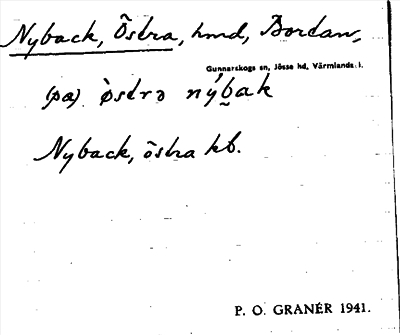 Nyback, Östra, hmd, Bordan,
Gunnarskogs sn, Jösse hd, Värmlands l.
(pa) òstrə nýb̬ak
Nyback, östra kb.
P. O. GRANÉR 1941.